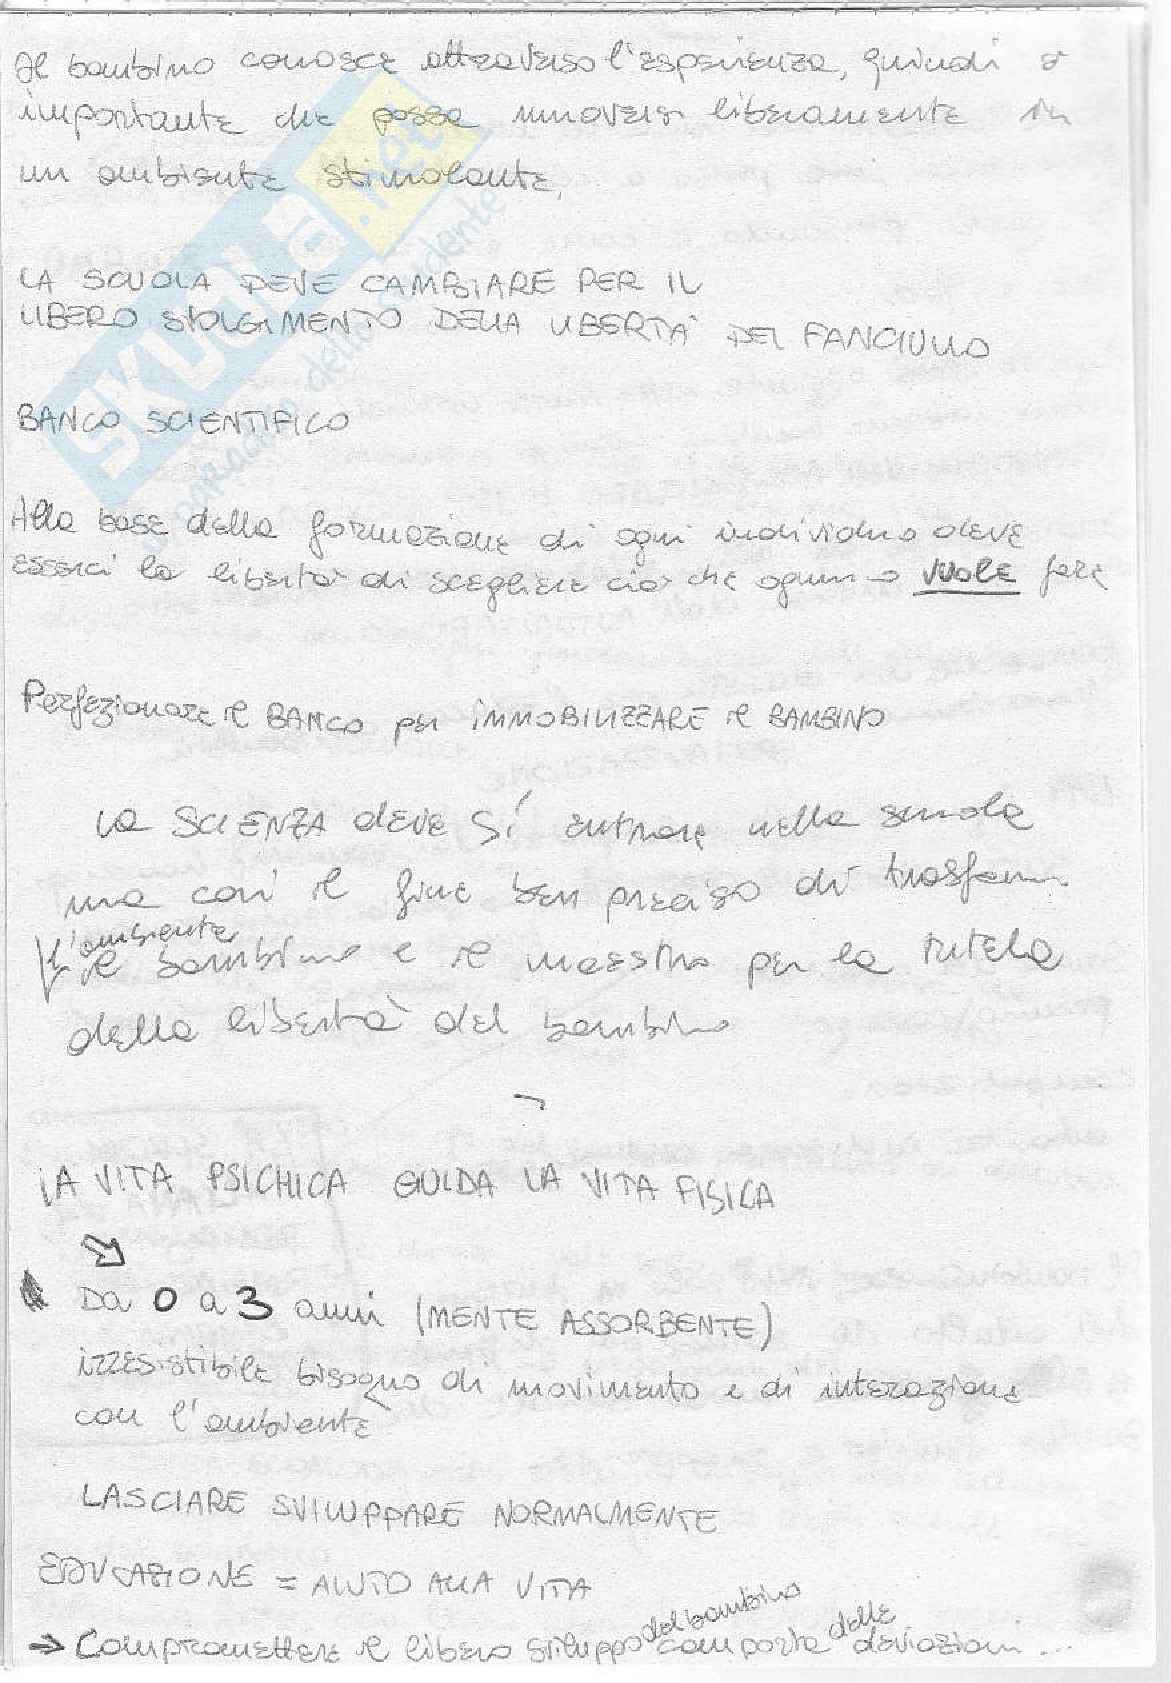 Il bambino conosce attraverso l'esperienza, quindi è
importante che possa muoversi liberamente in
un ambiente stimolante,
LA SCUOLA DEVE CAMBIARE PER IL
LIBERO SVOLGIMENTO DELLA LIBERTA' DEL FANCIULLO
BANCO SCIENTIFICO
Alla base della formazione di ogni individuo deve
esserci la libertà di scegliere ciò che ognuno vuole fare
Perfezionare il BANCO per IMMOBILIZZARE il BAMBINO
La SCIENZA deve sí entrare nella scuola
ma con il fine ben preciso di trasform
l'ambiente
il bambino e il maestro per la tutela
della libertà del bambino
LA VITA PSICHICA GUIDA LA VITA FISICA
Da 0 a 3 anni (MENTE ASSORBENTE)
irresistibile bisogno di movimento e di interazione
con l'ambiente
LASCIARE SVILUPPARE NORMALMENTE
EDUCAZIONE = AIUTO ALLA VITA
→ Compromettere il libero sviluppo del bambino comporta delle deviazioni...
SKUOLA.net